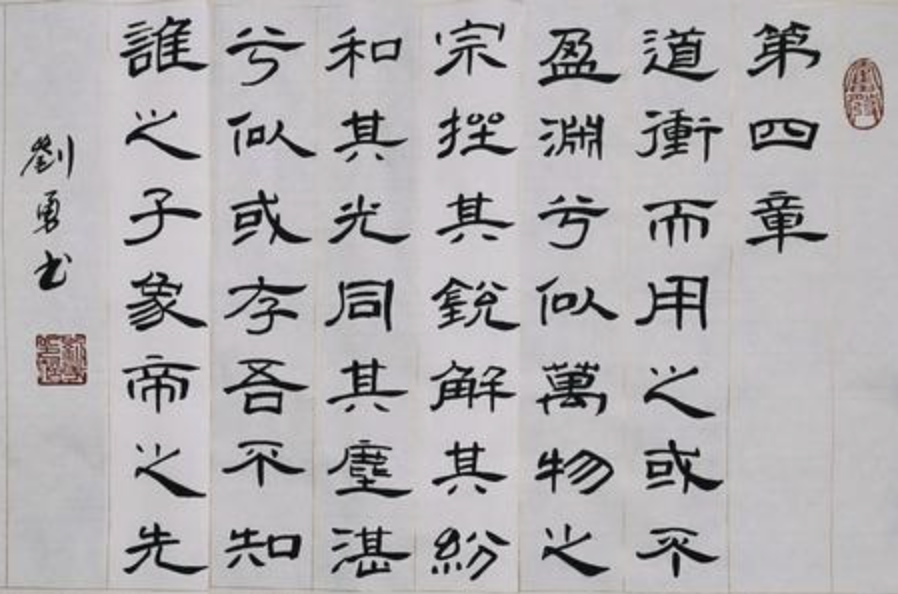 第四章
道衝而用之或不
盈淵兮似萬物之
宗挫其銳解其紛
和其光同其塵湛
兮似或存吾不知
誰之子象帝之先
劉勇书